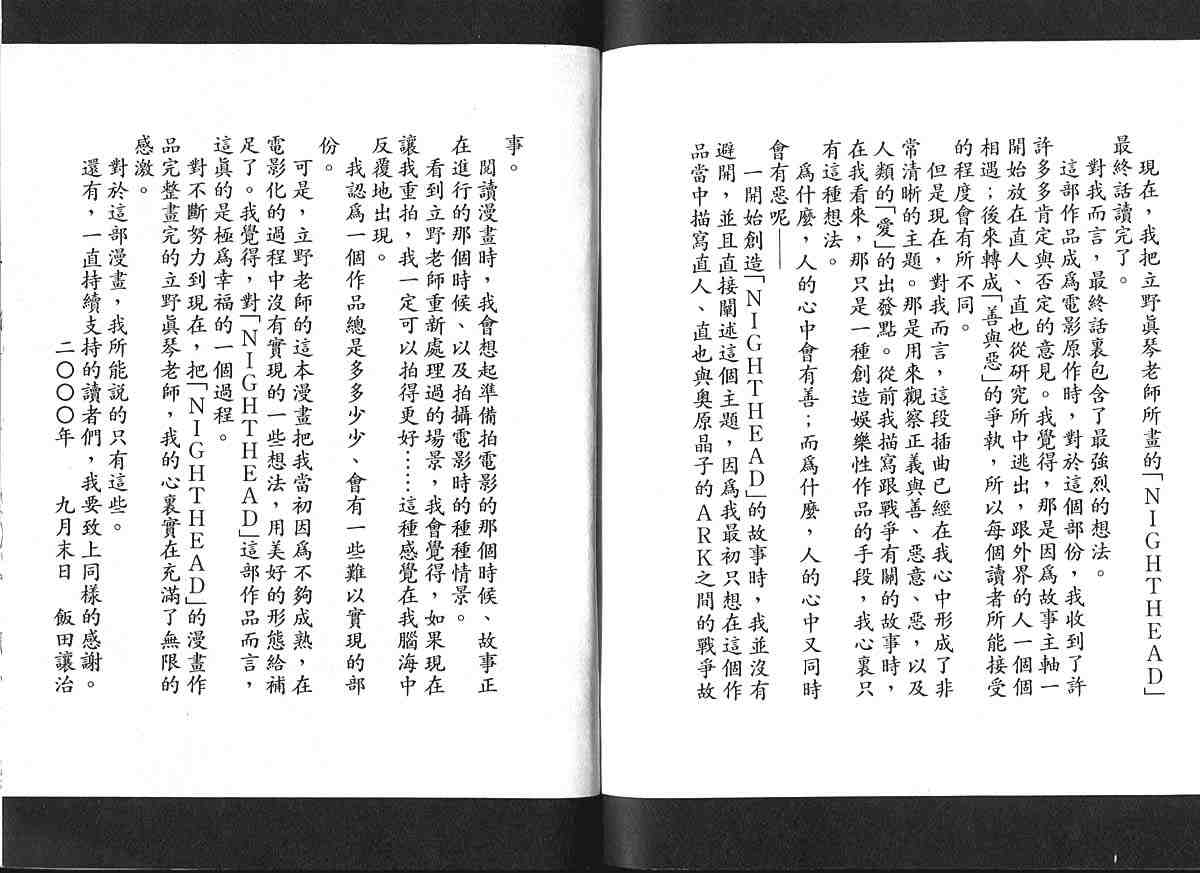 現在，我把立野眞琴老師所畫的「NIGHTHEAD」
最終話讀完了。
對我而言，最終話裏包含了最強烈的想法。
這部作品成爲電影原作時，對於這個部份，我收到了許
許多多肯定與否定的意見。我覺得，那是因爲故事主軸一
開始放在直人、直也從研究所中逃出，跟外界的人一個個
相遇；後來轉成「善與惡」的爭執，所以每個讀者所能接受
的程度會有所不同。
但是現在，對我而言，這段插曲已經在我心中形成了非
常清晰的主題。那是用來觀察正義與善、惡意、惡，以及
人類的「愛」的出發點。從前我描寫跟戰爭有關的故事時，
在我看來，那只是一種創造娛樂性作品的手段，我心裏只
有這種想法。
爲什麼，人的心中會有善；而爲什麼，人的心中又同時
會有惡呢——
一開始創造「NIGHTHEAD」的故事時，我並沒有
避開，並且直接闡述這個主題，因爲我最初只想在這個作
品當中描寫直人、直也與奧原晶子的ARK之間的戰爭故
事。
閱讀漫畫時，我會想起準備拍電影的那個時候、故事正
在進行的那個時候、以及拍攝電影時的種種情景。
看到立野老師重新處理過的場景，我會覺得，如果現在
讓我重拍，我一定可以拍得更好……這種感覺在我腦海中
反覆地出現。
我認爲一個作品總是多多少少、會有一些難以實現的部
份。
可是，立野老師的這本漫畫把我當初因爲不夠成熟，在
電影化的過程中沒有實現的一些想法，用美好的形態給補
足了。我覺得，對「NIGHTHEAD」這部作品而言，
這眞的是極爲幸福的一個過程。
對不斷努力到現在，把「NIGHTHEAD」的漫畫作
品完整畫完的立野眞琴老師，我的心裏實在充滿了無限的
感激。
對於這部漫畫，我所能説的只有這些。
還有，一直持續支持的讀者們，我要致上同樣的感謝。
二〇〇〇年　九月末日　飯田讓治